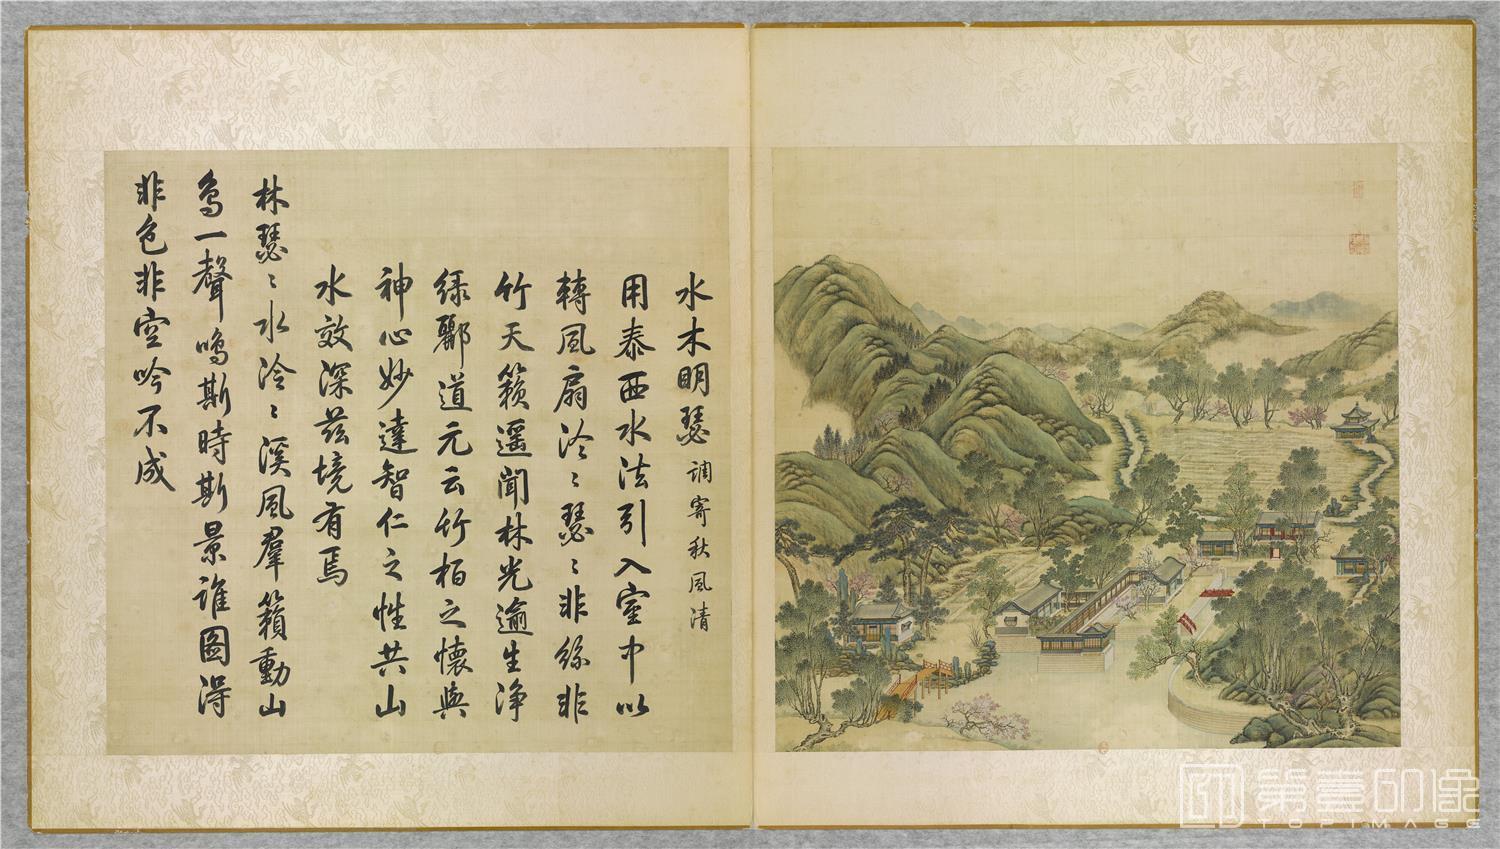 水木明瑟 調寄秋風清
用泰西水法引入室中以
轉風扇泠〻瑟〻非絲非
竹天籟遥聞林光逾生淨
緑酈道元云竹栢之懷與
神心妙達智仁之性共山
水效深兹境有焉
林瑟〻水泠〻溪風羣籟動山
鳥一聲鳴斯時斯景誰圖得
非色非空吟不成
第壹印像
TOPIMAGE